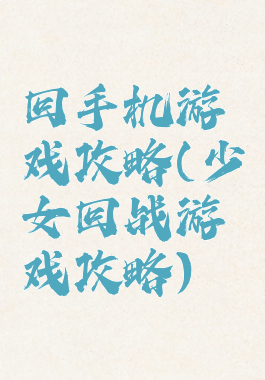 回手机游
戏攻略(少
女回战游
戏攻略)